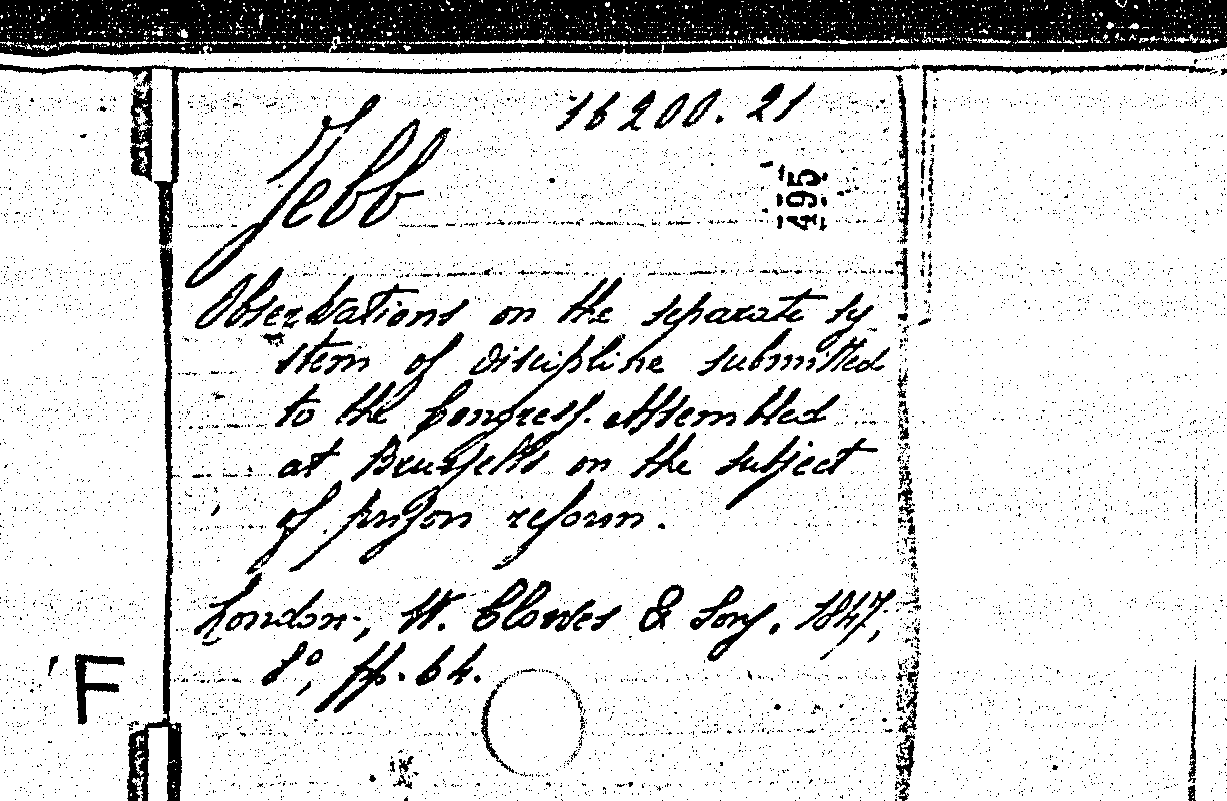 16200.21
Jebb
495
Observations on the separate sy
stem of discipline submitted
to the Congress. Assembled
at Brussells on the subject
of prison reform.
London, W. Clowes & Sons. 1847,
8°, pp. 64.
F